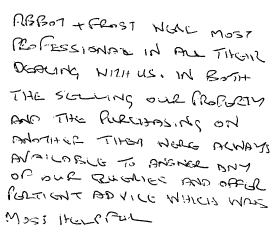 ABBOT + FROST WERE MOST
PROFESSIONAL IN ALL THEIR
DEALING WITH US. IN BOTH
THE SELLING OUR PROPERTY
AND THE PURCHASING ON
ANOTHER THEY WERE ALWAYS
AVAILABLE TO ANSWER ANY
OF OUR QUERIES AND OFFER
PERTIENT ADVICE WHICH WAS
MOST HELPFUL